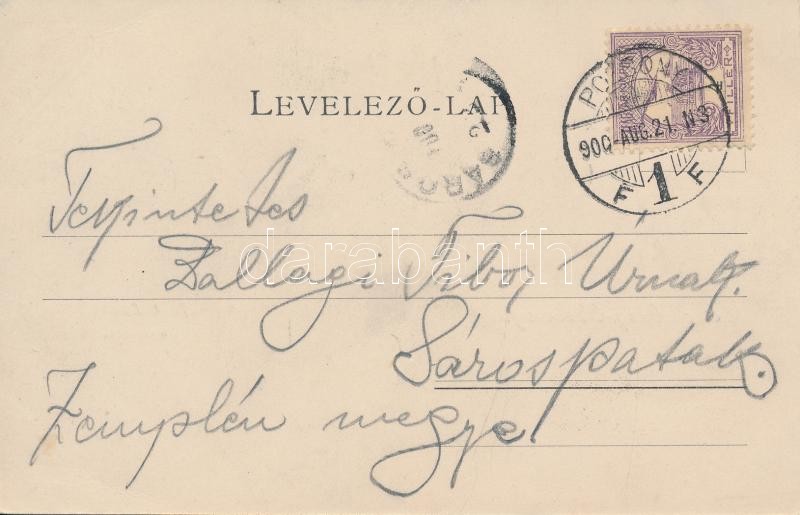 LEVELEZŐ-LAP
FILLÉR
POZSONY
900 AUG. 21. N3
F 1 F
SÁROS
Tekintetes
Ballagi Tibor Úrnak.
Sárospatak.
Zemplén megye
darabanth